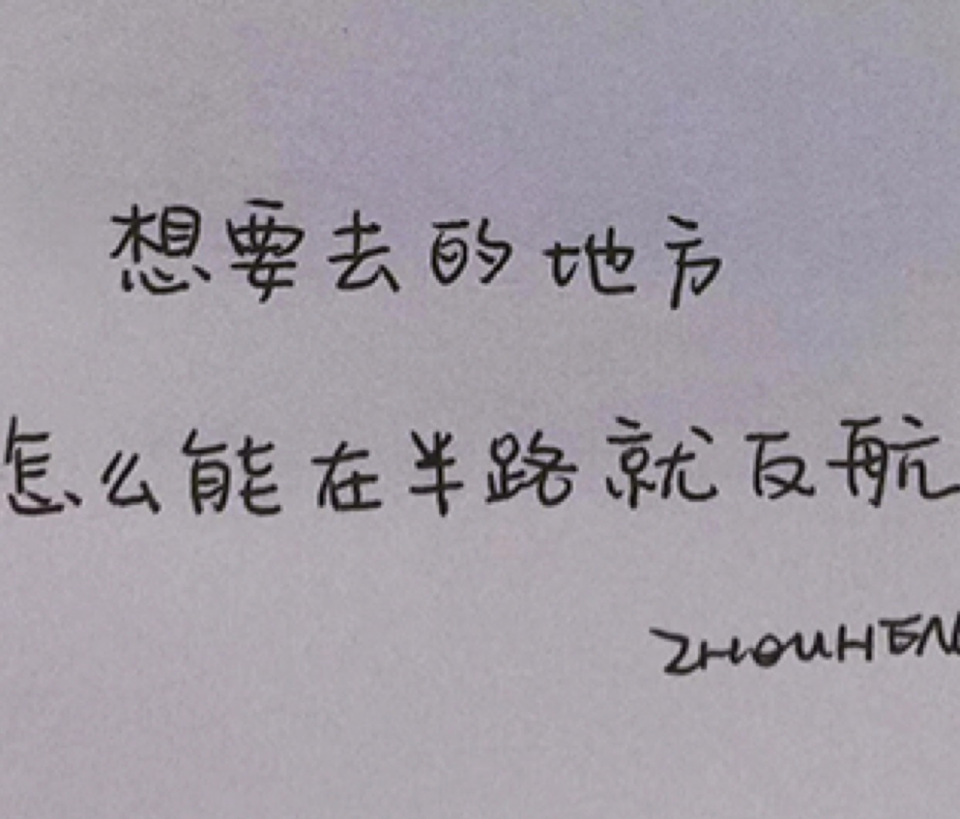 想要去的地方
怎么能在半路就反航
ZHOUHEN